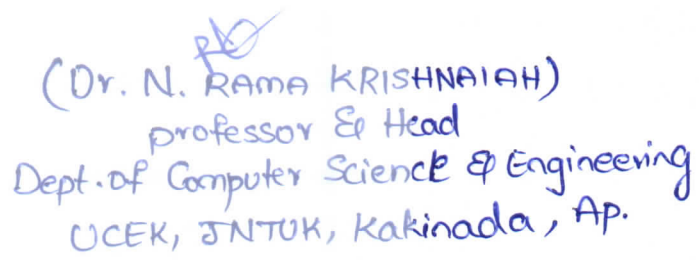 (Dr. N. RAMA KRISHNAIAH)
professor & Head
Dept. of Computer Science & Engineering
UCEK, JNTUK, Kakinada, AP.